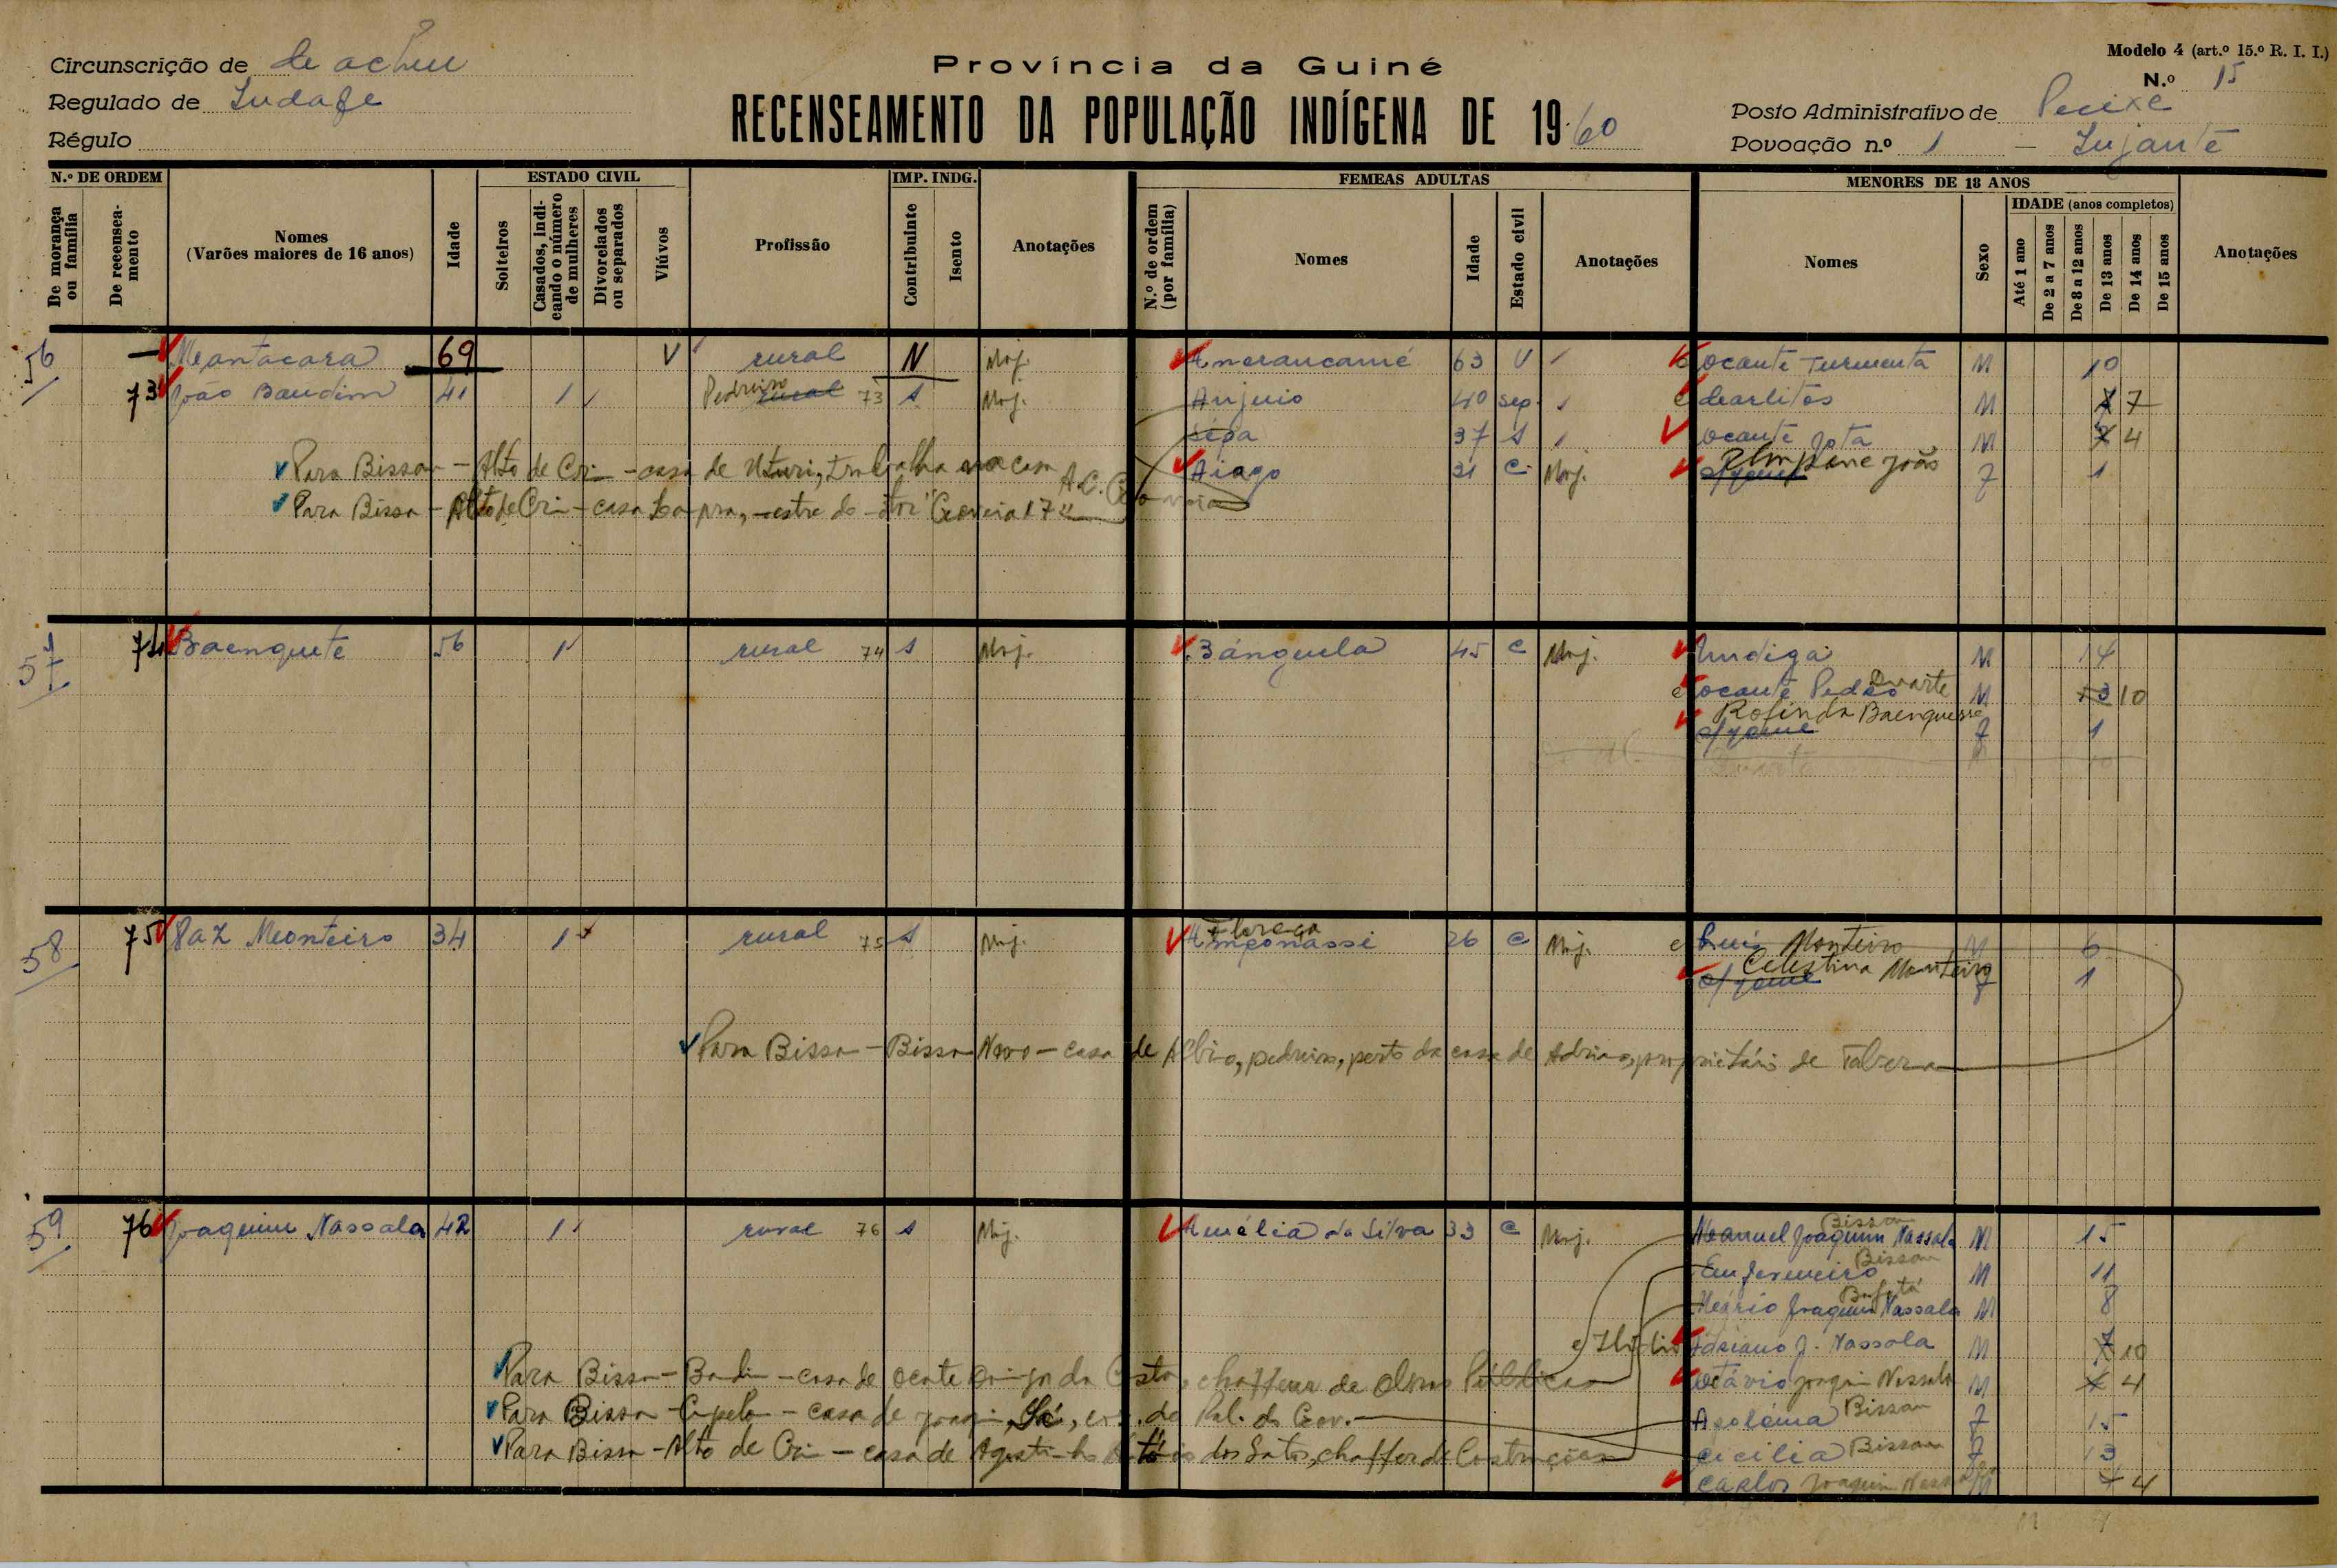 Modelo 4 (art.º 15.º R. I. I.)
Circunscrição de
Província da Guiné
N.º 15
Regulado de
RECENSEAMENTO DA POPULAÇÃO INDÍGENA DE 1960
Posto Administrativo de Pecixe
Régulo
Povoação n.º 1 — Jujante
N.º DE ORDEM
ESTADO CIVIL
IMP. INDG.
FEMEAS ADULTAS
MENORES DE 18 ANOS
De morança ou família
De recenseamento
Nomes (Varões maiores de 16 anos)
Idade
Solteiros
Casados, indicando o número de mulheres
Divorciados ou separados
Viúvos
Profissão
Contribuinte
Isento
Anotações
N.º de ordem (por família)
Nomes
Idade
Estado civil
Anotações
Nomes
Sexo
IDADE (anos completos)
Até 1 ano
De 2 a 7 anos
De 8 a 12 anos
De 13 anos
De 14 anos
De 15 anos
Anotações
56 — Mantacara 69 V rural N Maj. 63 V Ocante M 10
73 João Baudim 41 1 Pedreiro rural 73 S Maj. Anjuio 40 sep. Carlitos M 7
Sépa 37 S Ocante Jota M 4
Para Bissau – Alto de Crim – casa de trabalha na casa A.C. Gouveia
Aiago 31 C Maj. João F 1
Para Bissau – Alto de Crim – casa
57 74 Baenquete 56 1 rural 74 S Maj. Bánguela 45 C Maj. Undiga M 14
Ocante Pedro Duarte M 13 10
Rosinda Baenquesse
s/ nome F 1
58 75 Paz Monteiro 34 1 rural 75 S Maj. 26 C Maj. Luís Monteiro M 6
Celestina Monteiro
s/ nome F 1
Para Bissau – Bissau Novo – casa de Albino, pedreiro, perto da casa de Adriano, proprietário de Taberna
59 76 Joaquim Nassala 42 1 rural 76 S Maj. Amélia da Silva 33 C Maj. Manuel Joaquim Nassala Bissau M 15
Enfermeiro Bissau M 11
Mário Joaquim Nassala Bafatá M 8
Adriano J. Nassala M 7 10
Para Bissau – Bandim – casa de Ocante Domingos da Costa, chaffeur de Obras Públicas
Otávio Joaquim Nassala M 4
Para Bissau – Cupelom – casa de Joaquim Sá, de Pal. do Gov.
Apolónia Bissau F 15
Para Bissau – Alto de Crim – casa de Agostinho António dos Santos, chaffer de Construções
Cicilia Bissau F 13
Carlos Joaquim Nassala M 4